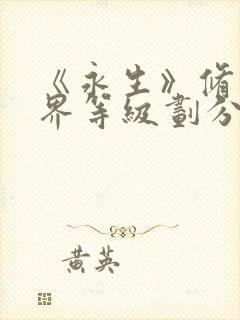 《永生》脩
界等級劃分
黄英